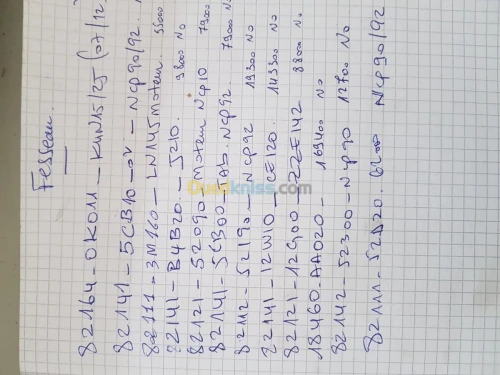 Fesseau.
82164-0K011-KUN15/25 (07/12)
82141-5CB10-OV-Ncp90/92.
82111-3M160-LN145 Motem. 55000
82141-B4B20-S210. 98000 No
82121-52090-Motem Ncp10 79000
82141-5CB00-Ab.Ncp92. 79000 No
82112-52I90-Ncp92 19300 No
82141-12W10-CE120. 143300 No
82121-12G00-ZZE142 8800 No
18460-AA020-169400 No
82142-52300-Ncp90 12700 No
82111-52D20. Ncp90/92
Ouedkniss.com